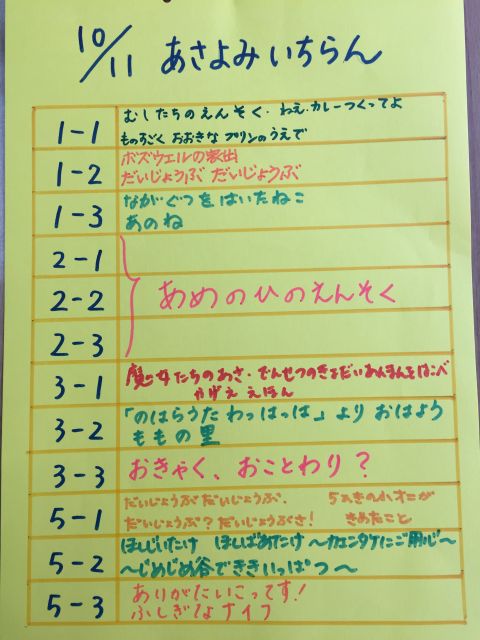 10/11 あさよみいちらん
1-1
むしたちのえんそく・ねえ、カレーつくってよ
ものすごく おおきな プリンのうえで
1-2
ボズウェルの家出
だいじょうぶ だいじょうぶ
1-3
ながぐつをはいたねこ
あのね
2-1
2-2
2-3
あめのひのえんそく
3-1
魔女たちのあさ・でんせつのきょだいあんまんをはこべ
かげええほん
3-2
「のはらうた わっはっは」より おはよう
ももの里
3-3
おきゃく、おことわり?
5-1
だいじょうぶだいじょうぶ. 5ひきの小オニが
だいじょうぶ?だいじょうぶさ! きめたこと
5-2
ほしじいたけ ほしばあたけ ~カエンタケにご用心~
~じめじめ谷でききいっぱつ~
5-3
ありがたいこってす!
ふしぎなナイフ